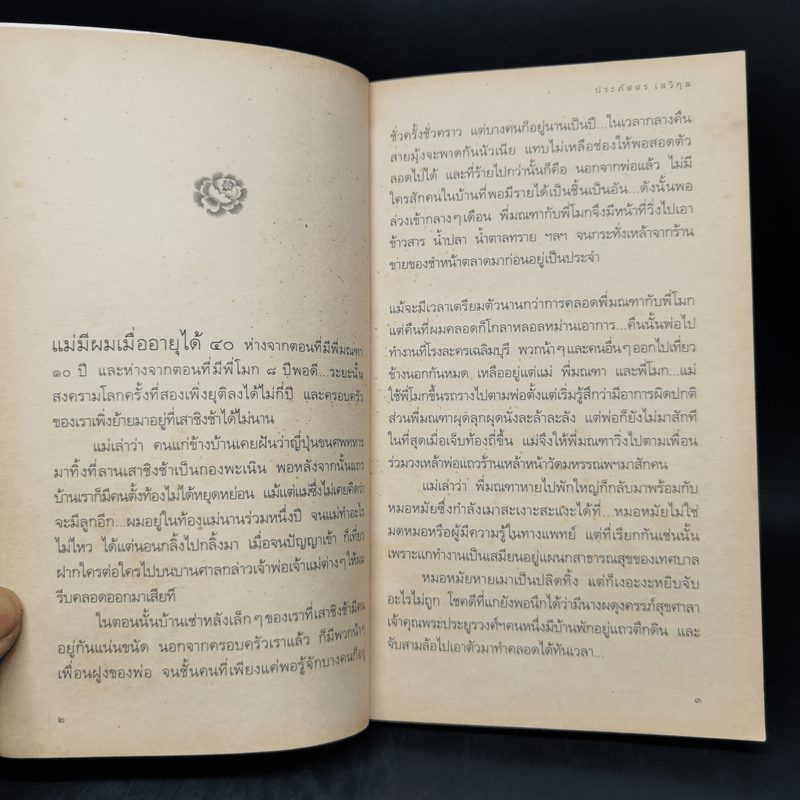 แม่มีผมเมื่ออายุได้ ๔๐ ห่างจากตอนที่มีพี่มณฑา
๑๐ ปี และห่างจากตอนที่มีพี่โมก ๘ ปีพอดี...ระยะนั้น
สงครามโลกครั้งที่สองเพิ่งยุติลงได้ไม่กี่ปี และครอบครัว
ของเราเพิ่งย้ายมาอยู่ที่เสาชิงช้าได้ไม่นาน
แม่เล่าว่า คนแก่ข้างบ้านเคยฝันว่าญี่ปุ่นขนศพทหาร
มาทิ้งที่ลานเสาชิงช้าเป็นกองพะเนิน พอหลังจากนั้นแถว
บ้านเราก็มีคนตั้งท้องไม่ได้หยุดหย่อน แม้แต่แม่ซึ่งไม่เคยคิดว่า
จะมีลูกอีก...ผมอยู่ในท้องแม่นานร่วมหนึ่งปี จนแม่ทำอะไร
ไม่ไหว ได้แต่นอนกลิ้งไปกลิ้งมา เมื่อจนปัญญาเข้า ก็เที่ยว
ฝากใครต่อใครไปบนบานศาลกล่าวเจ้าพ่อเจ้าแม่ต่างๆ ให้ผม
รีบคลอดออกมาเสียที
ในตอนนั้นบ้านเช่าหลังเล็กๆ ของเราที่เสาชิงช้ามีคน
อยู่กันแน่นขนัด นอกจากครอบครัวเราแล้ว ก็มีพวกน้าๆ
เพื่อนฝูงของพ่อ จนชั้นคนที่เพียงแค่พอรู้จักบางคนก็อยู่
๒
ประภัสสร เสวิกุล
ชั่วครั้งชั่วคราว แต่บางคนก็อยู่นานเป็นปี...ในเวลากลางคืน
สายมุ้งจะพาดกันนัวเนีย แทบไม่เหลือช่องให้พอสอดตัว
ลอดไปได้ และที่ร้ายไปกว่านั้นก็คือ นอกจากพ่อแล้ว ไม่มี
ใครสักคนในบ้านที่พอมีรายได้เป็นชิ้นเป็นอัน...ดังนั้นพอ
ล่วงเข้ากลางๆ เดือน พี่มณฑากับพี่โมกจึงมีหน้าที่วิ่งไปเอา
ข้าวสาร น้ำปลา น้ำตาลทราย ฯลฯ จนกระทั่งเหล้าจากร้าน
ขายของชำหน้าตลาดมาก่อนอยู่เป็นประจำ
แม้จะมีเวลาเตรียมตัวนานกว่าการคลอดพี่มณฑากับพี่โมก
แต่คืนที่ผมคลอดก็โกลาหลอลหม่านเอาการ...คืนนั้นพ่อไป
ทำงานที่โรงละครเฉลิมบุรี พวกน้าๆ และคนอื่นๆ ออกไปเที่ยว
ข้างนอกกันหมด เหลืออยู่แต่แม่ พี่มณฑา และพี่โมก...แม่
ใช้พี่โมกขึ้นรถรางไปตามพ่อตั้งแต่เริ่มรู้สึกว่ามีอาการผิดปกติ
ส่วนพี่มณฑาผุดลุกผุดนั่งละล้าละลัง แต่พ่อก็ยังไม่มาสักที
ในที่สุดเมื่อเจ็บท้องถี่ขึ้น แม่จึงให้พี่มณฑาวิ่งไปตามเพื่อน
ร่วมวงเหล้าพ่อแถวร้านเหล้าหน้าวัดมหรรณพฯมาสักคน
แม่เล่าว่า พี่มณฑาหายไปพักใหญ่ก็กลับมาพร้อมกับ
หมอหมัยซึ่งกำลังเมาสะเงาะสะแงะได้ที่...หมอหมัยไม่ใช่
มดหมอหรือผู้มีความรู้ในทางแพทย์ แต่ที่เรียกกันเช่นนั้น
เพราะแกทำงานเป็นเสมียนอยู่แผนกสาธารณสุขของเทศบาล
หมอหมัยหายเมาเป็นปลิดทิ้ง แต่ก็เงอะงะหยิบจับ
อะไรไม่ถูก โชคดีที่แกยังพอนึกได้ว่ามีนางผดุงครรภ์สุขศาลา
เจ้าคุณพระประยูรวงศ์ฯคนหนึ่งมีบ้านพักอยู่แถวตึกดิน และ
จับสามล้อไปเอาตัวมาทำคลอดได้ทันเวลา...
๓